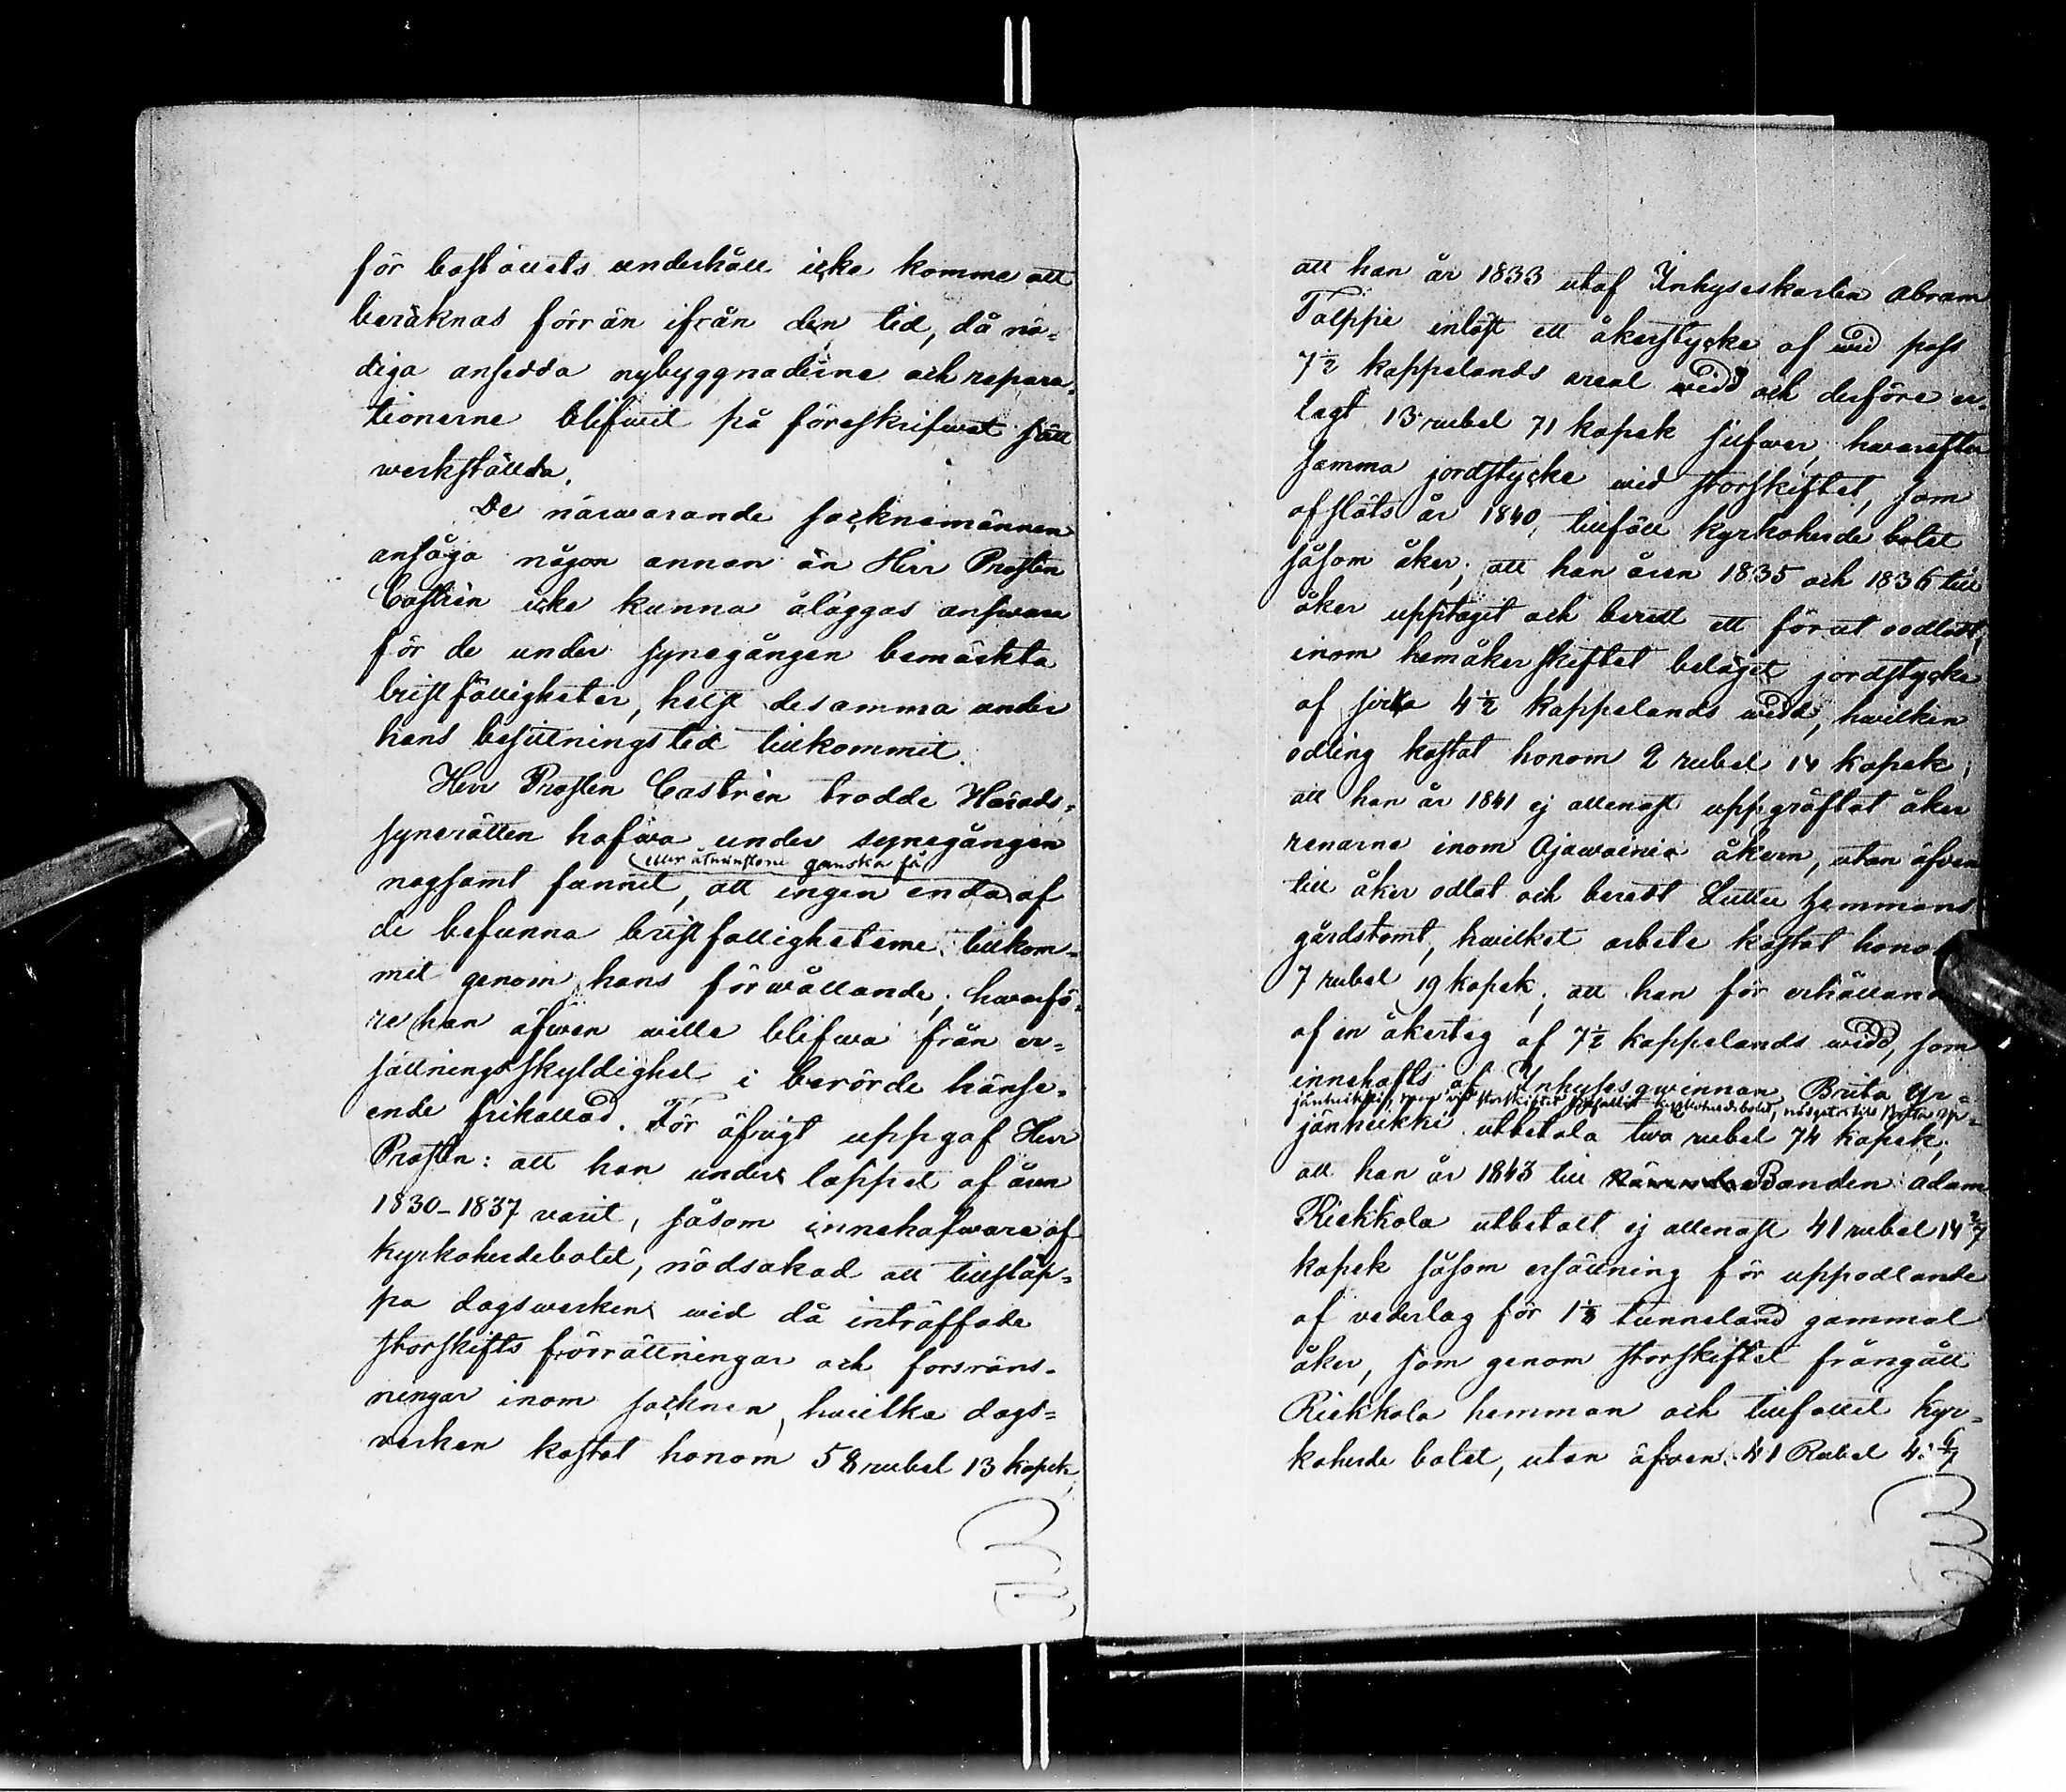 för boställets underhåll icke komma att
beräknas förrän ifrån den tid, då nö-
diga ansedda nybyggnaderne och repara-
tionerne blifwit på föreskrifwet sätt
werkställda.
De närwarande socknemännen
ansågo någon annan än Herr Prosten
Castrén icke kunna åläggas answara
för de under synegången bemärkta
bristfälligheter, helst desamma under
hans besittningstid tillkommit.
Herr Prosten Castrén trodde Härads-
synerätten hafwa under synegången
(eller åtminstone ganska få)
nogsamt funnit, att ingen enda af
de befunna bristfälligheterne tillkom-
mit genom hans förwållande; hwarfö-
re han äfwen wille blifwa från er-
sättningsskyldighet i berörde hänse-
ende frikallad. För öfrigt uppgaf Herr
Prosten: att han under loppet af åren
1830-1837 varit, såsom innehafware af
Kyrkoherdebolet, nödsakad att tillsläp-
pa dagswerken wid då inträffade
storskifts förrättningar och forsräns-
ningar inom socknen, hwilka dags-
verken kostat honom 58 rubel 13 kopek,
att han år 1833 utaf Inhyseskarlen Abram
Talppie inlöst ett åkerstycke af wid pass
7½ kappelands areal widd och derföre er-
lagt 13 rubel 71 kopek silfwer, hwarefter
samma jordstycke wid storskiftet, som
afslöts år 1840, tillföll kyrkoherde bolet
såsom åker; att han åren 1835 och 1836 till
åker upptagit och beredt ett förut oodladt,
inom hemåker skiftet beläget jordstycke
af sirka 4½ kappelands widd, hwilken
odling kostat honom 2 rubel 14 kopek;
att han år 1841 ej allenast uppgräftat åker
renarne inom Ojawainio åkern, utan äfven
till åker odlat och beredt Luttu hemmans
gårdstomt, hwilket arbete kostat hono
7 rubel 19 kopek; att han för erhålland
af en åkerteg af 7½ kappelands widd, som
innehafts af Inhysesqwinnan Brita Yr-
jänheikki, som wid storskiftet tillfallit kyrkoherdebolet, nödgats till Brita Yr-
jänheikki utbetala twå rubel 74 kopek;
att han år 1843 till Bonden Adam
Riekkola utbetalt ej allenast 41 rubel 14 2/7
kopek såsom ersättning för uppodlande
af vederlag för 1⅓ tunneland gammal
åker, som genom storskiftet frångått
Riekkola hemman och tillfallit Kyr-
koherde bolet, utan äfven 41 Rubel 4 6/7